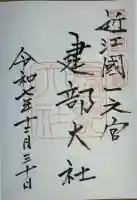 近江國一之宮
建部大社
令和七年十二月三十日